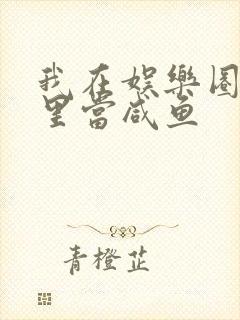 我在娱樂圈
里當咸鱼
青橙芷